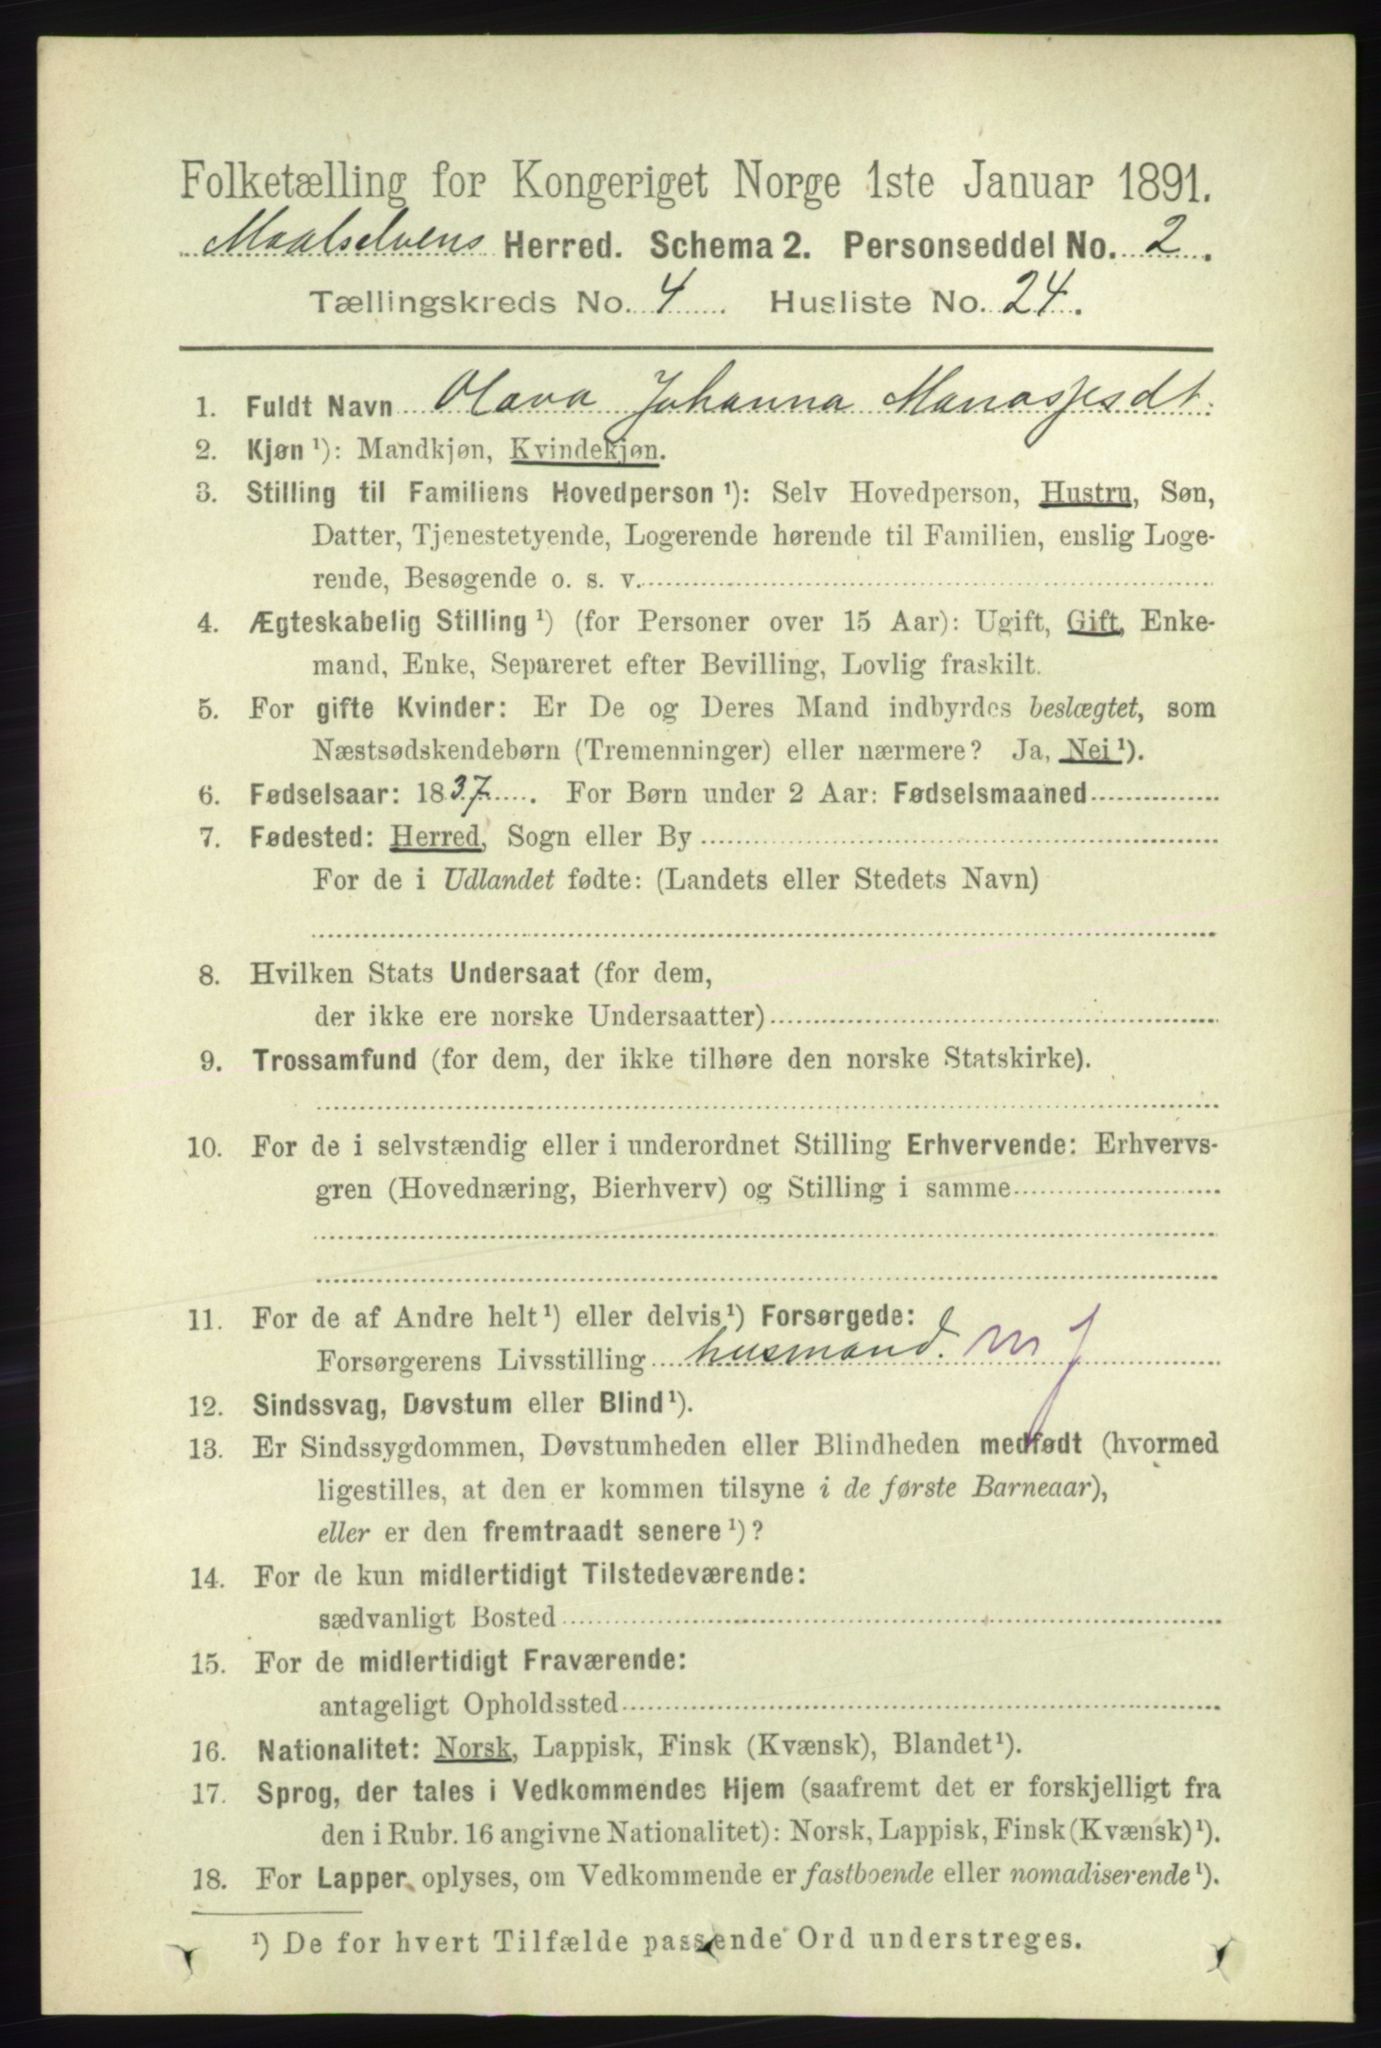 Folketælling for Kongeriget Norge 1ste Januar 1891.
Maalselvens Herred. Schema 2. Personseddel No. 2.
Tællingskreds No. 4 Husliste No. 24.
1. Fuldt Navn Olava Johanna Manasjesdt.
2. Kjøn ¹): Mandkjøn, Kvindekjøn.
3. Stilling til Familiens Hovedperson ¹): Selv Hovedperson, Hustru, Søn,
Datter, Tjenestetyende, Logerende hørende til Familien, enslig Loge-
rende, Besøgende o. s. v.
4. Ægteskabelig Stilling ¹) (for Personer over 15 Aar): Ugift, Gift, Enke-
mand, Enke, Separeret efter Bevilling, Lovlig fraskilt.
5. For gifte Kvinder: Er De og Deres Mand indbyrdes beslægtet, som
Næstsødskendebørn (Tremenninger) eller nærmere? Ja, Nei ¹).
6. Fødselsaar: 1837. For Børn under 2 Aar: Fødselsmaaned
7. Fødested: Herred, Sogn eller By
For de i Udlandet fødte: (Landets eller Stedets Navn)
8. Hvilken Stats Undersaat (for dem,
der ikke ere norske Undersaatter)
9. Trossamfund (for dem, der ikke tilhøre den norske Statskirke).
10. For de i selvstændig eller i underordnet Stilling Erhvervende: Erhvervs-
gren (Hovednæring, Bierhverv) og Stilling i samme
11. For de af Andre helt ¹) eller delvis ¹) Forsørgede:
Forsørgerens Livsstilling husmand. m J
12. Sindssvag, Døvstum eller Blind ¹).
13. Er Sindssygdommen, Døvstumheden eller Blindheden medfødt (hvormed
ligestilles, at den er kommen tilsyne i de første Barneaar),
eller er den fremtraadt senere ¹)?
14. For de kun midlertidigt Tilstedeværende:
sædvanligt Bosted
15. For de midlertidigt Fraværende:
antageligt Opholdssted
16. Nationalitet: Norsk, Lappisk, Finsk (Kvænsk), Blandet ¹).
17. Sprog, der tales i Vedkommendes Hjem (saafremt det er forskjelligt fra
den i Rubr. 16 angivne Nationalitet): Norsk, Lappisk, Finsk (Kvænsk) ¹).
18. For Lapper oplyses, om Vedkommende er fastboende eller nomadiserende ¹).
¹) De for hvert Tilfælde passende Ord understreges.